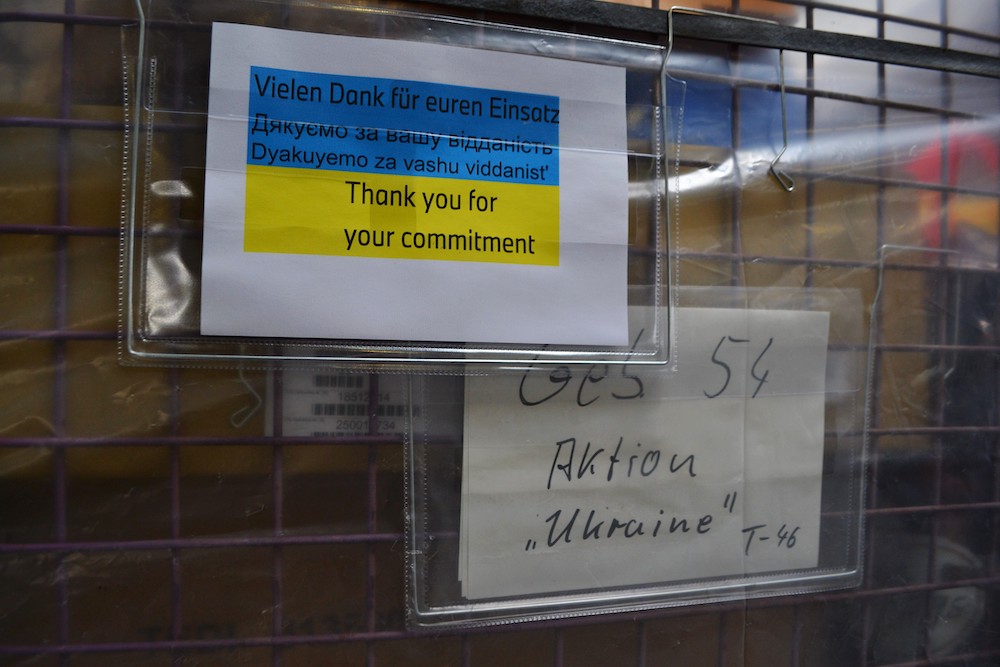 Vielen Dank für euren Einsatz
Дякуємо за вашу відданість
Dyakuyemo za vashu viddanist'
Thank you for
your commitment
Geb 54
Aktion
„Ukraine"
T-46